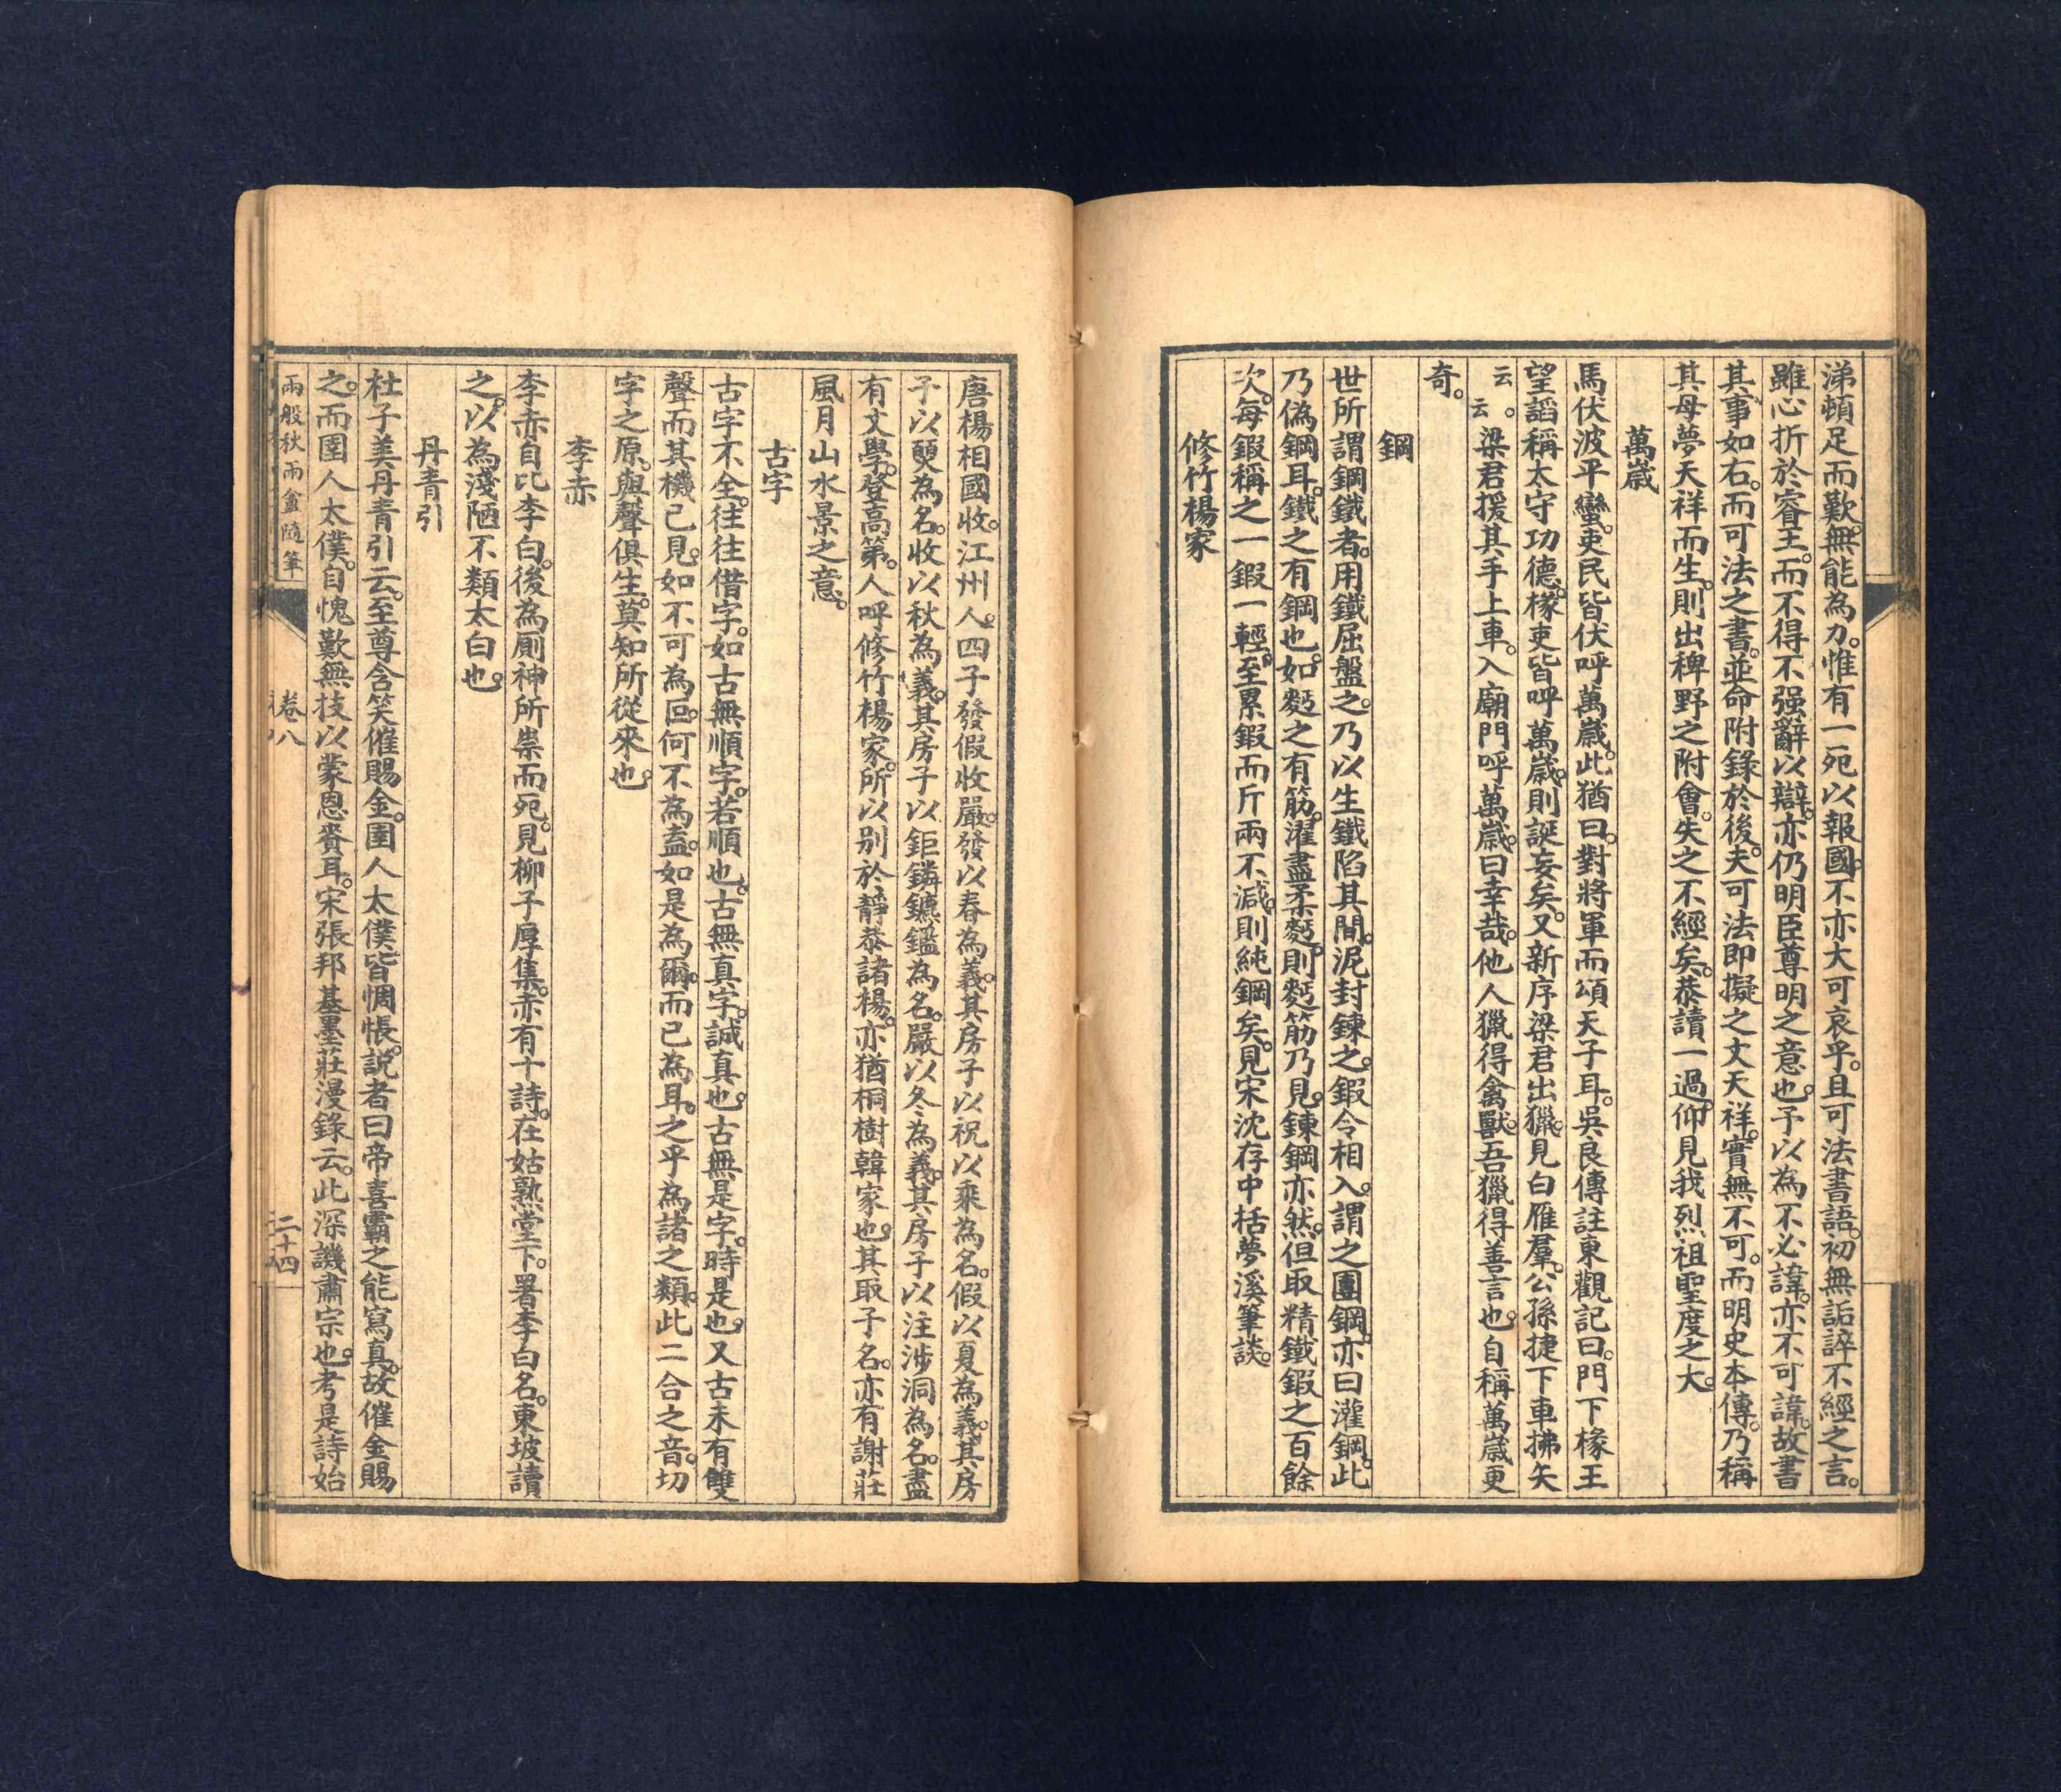 涕頓足而歎。無能為力。惟有一死以報國。不亦大可哀乎。且可法書語。初無詬誶不經之言。
雖心折於睿王。而不得不强辭以辯。亦仍明臣尊明之意也。予以為不必諱。亦不可諱。故書
其事如右。而可法之書。並命附錄於後。夫可法即擬之文天祥。實無不可。而明史本傳。乃稱
其母夢天祥而生。則出稗野之附會。失之不經矣。恭讀一過。仰見我烈祖聖度之大。
萬歲
馬伏波平蠻。吏民皆伏呼萬歲。此猶曰。對將軍而頌天子耳。吳良傳註東觀記曰。門下椽王
望謟稱太守功德。椽吏皆呼萬歲。則誕妄矣。又新序梁君出獵。見白雁羣。公孫捷下車拂矢
云云。梁君援其手上車。入廟門呼萬歲。曰幸哉。他人獵得禽獸。吾獵得善言也。自稱萬歲更
奇。
鋼
世所謂鋼鐵者。用鐵屈盤之。乃以生鐵陷其間。泥封鍊之。鍜令相入。謂之團鋼。亦曰灌鋼。此
乃偽鋼耳。鐵之有鋼也。如麪之有筋。濯盡柔麪。則麪筋乃見。鍊鋼亦然。但取精鐵鍜之百餘
次。每鍜稱之一鍜一輕。至累鍜而斤兩不減。則純鋼矣。見宋沈存中括夢溪筆談。
修竹楊家
唐楊相國收。江州人。四子發假收嚴。發以春為義。其房子以祝以乘為名。假以夏為義。其房
子以煚為名。收以秋為義。其房子以鉅鏻鑣鑑為名。嚴以冬為義。其房子以注涉洞為名。盡
有文學。登高第。人呼修竹楊家。所以別於靜恭諸楊。亦猶桐樹韓家也。其取子名。亦有謝莊
風月山水景之意。
古字
古字不全。往往借字。如古無順字。若順也。古無真字。誠真也。古無是字。時是也。又古未有雙
聲而其機已見。如不可為叵。何不為盍。如是為爾。而已為耳。之乎為諸之類。此二合之音。切
字之原。與聲俱生。莫知所從來也。
李赤
李赤自比李白。後為厠神所祟而死。見柳子厚集。赤有十詩。在姑熟堂下。署李白名。東坡讀
之。以為淺陋不類太白也。
丹青引
杜子美丹青引云。至尊含笑催賜金。圉人太僕皆惆悵。說者曰帝喜霸之能寫真。故催金賜
之。而圉人太僕。自愧歎無技以蒙恩賚耳。宋張邦基墨莊漫錄云。此深譏肅宗也。考是詩始
兩般秋雨盦隨筆
卷八
二十四